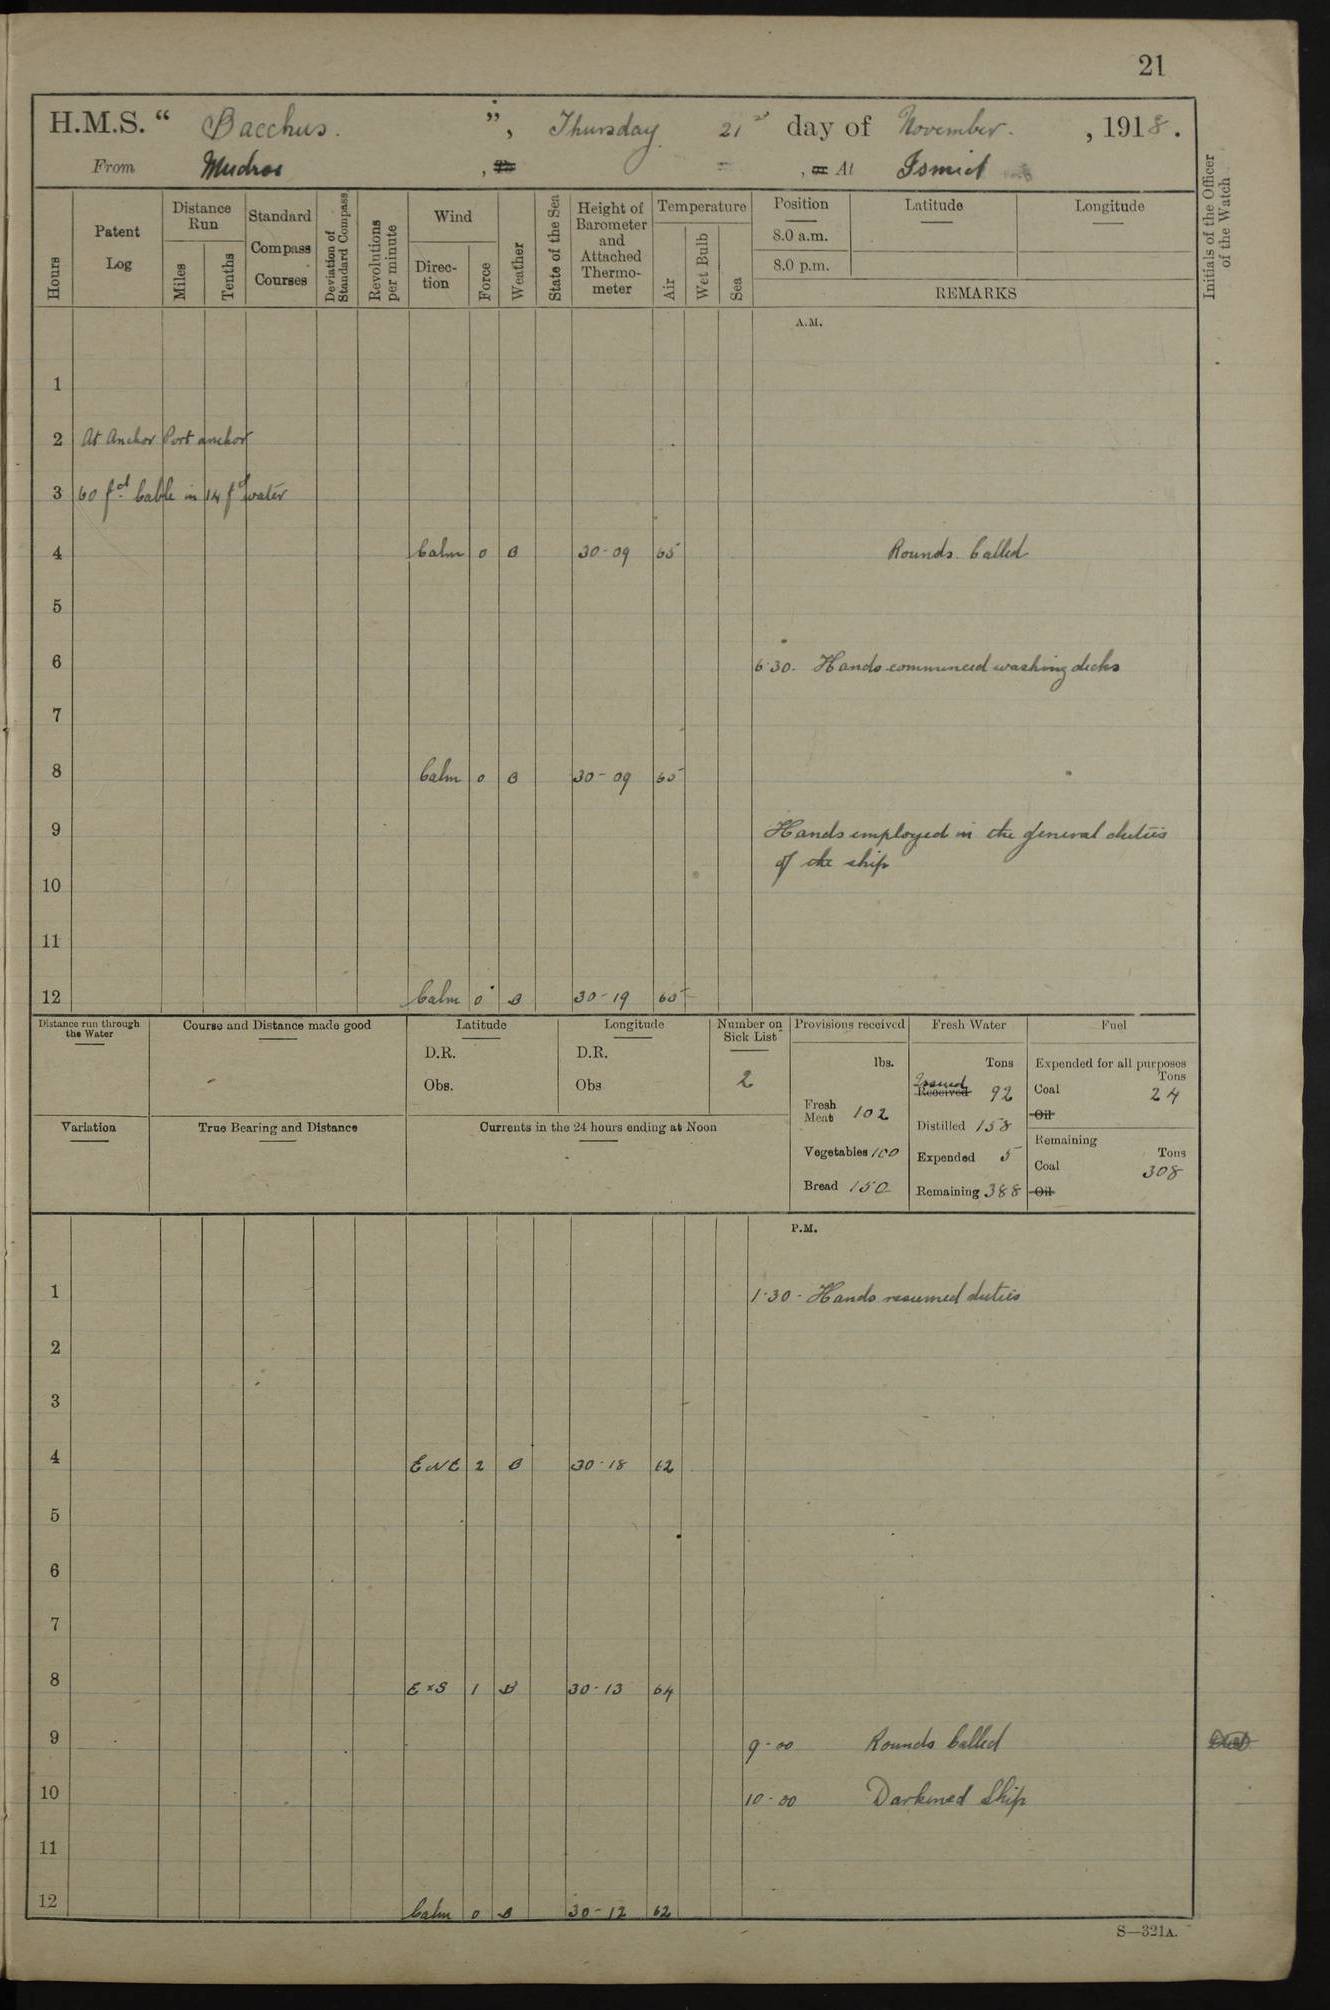 21
H.M.S. “ Bacchus. ”, Thursday 21st day of November. , 1918.
From Mudros , To , or At Ismid
Hours
Patent Log
Distance Run
Miles
Tenths
Standard Compass Courses
Deviation of Standard Compass
Revolutions per minute
Wind
Direction
Force
Weather
State of the Sea
Height of Barometer and Attached Thermometer
Temperature
Air
Wet Bulb
Sea
Position Latitude Longitude
8.0 a.m.
8.0 p.m.
REMARKS
Initials of the Officer of the Watch
A.M.
1
2 At Anchor Port anchor
3 60 fd. Cable in 14 fd water
4 Calm 0 B 30-09 65 Rounds Called
5
6 6.30. Hands commenced washing decks
7
8 Calm 0 B 30-09 65
9 Hands employed in the general duties
of the ship
10
11
12 Calm 0 B 30-19 65
Distance run through the Water
Course and Distance made good
Latitude
D.R.
Obs.
Longitude
D.R.
Obs
Number on Sick List
2
Provisions received
lbs.
Fresh Meat 102
Vegetables 100
Bread 150
Fresh Water
Tons
Issued
Received 92
Distilled 158
Expended 5
Remaining 388
Fuel
Expended for all purposes
Tons
Coal 24
Oil
Remaining
Tons
Coal 308
Oil
Variation
True Bearing and Distance
Currents in the 24 hours ending at Noon
P.M.
1 1.30 - Hands resumed duties
2
3
4 ENE 2 B 30-18 62
5
6
7
8 ExS 1 B 30-13 64
9 9-00 Rounds Called
10 10-00 Darkened Ship
11
12 Calm 0 B 30-12 62
S—321A.